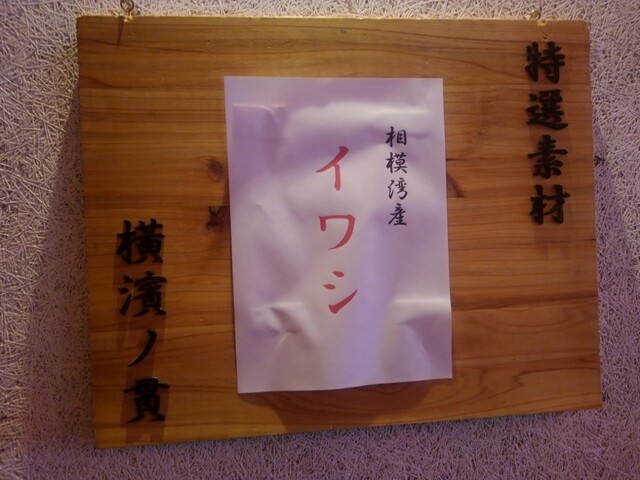 特選素材
相模湾産
イワシ
横濱ノ貫